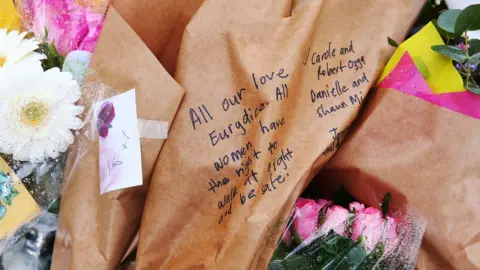 All our love
Eurydice. All
women have
the right to
walk at night
and be safe.
Carole and
Robert
Danielle and
Shaun
x